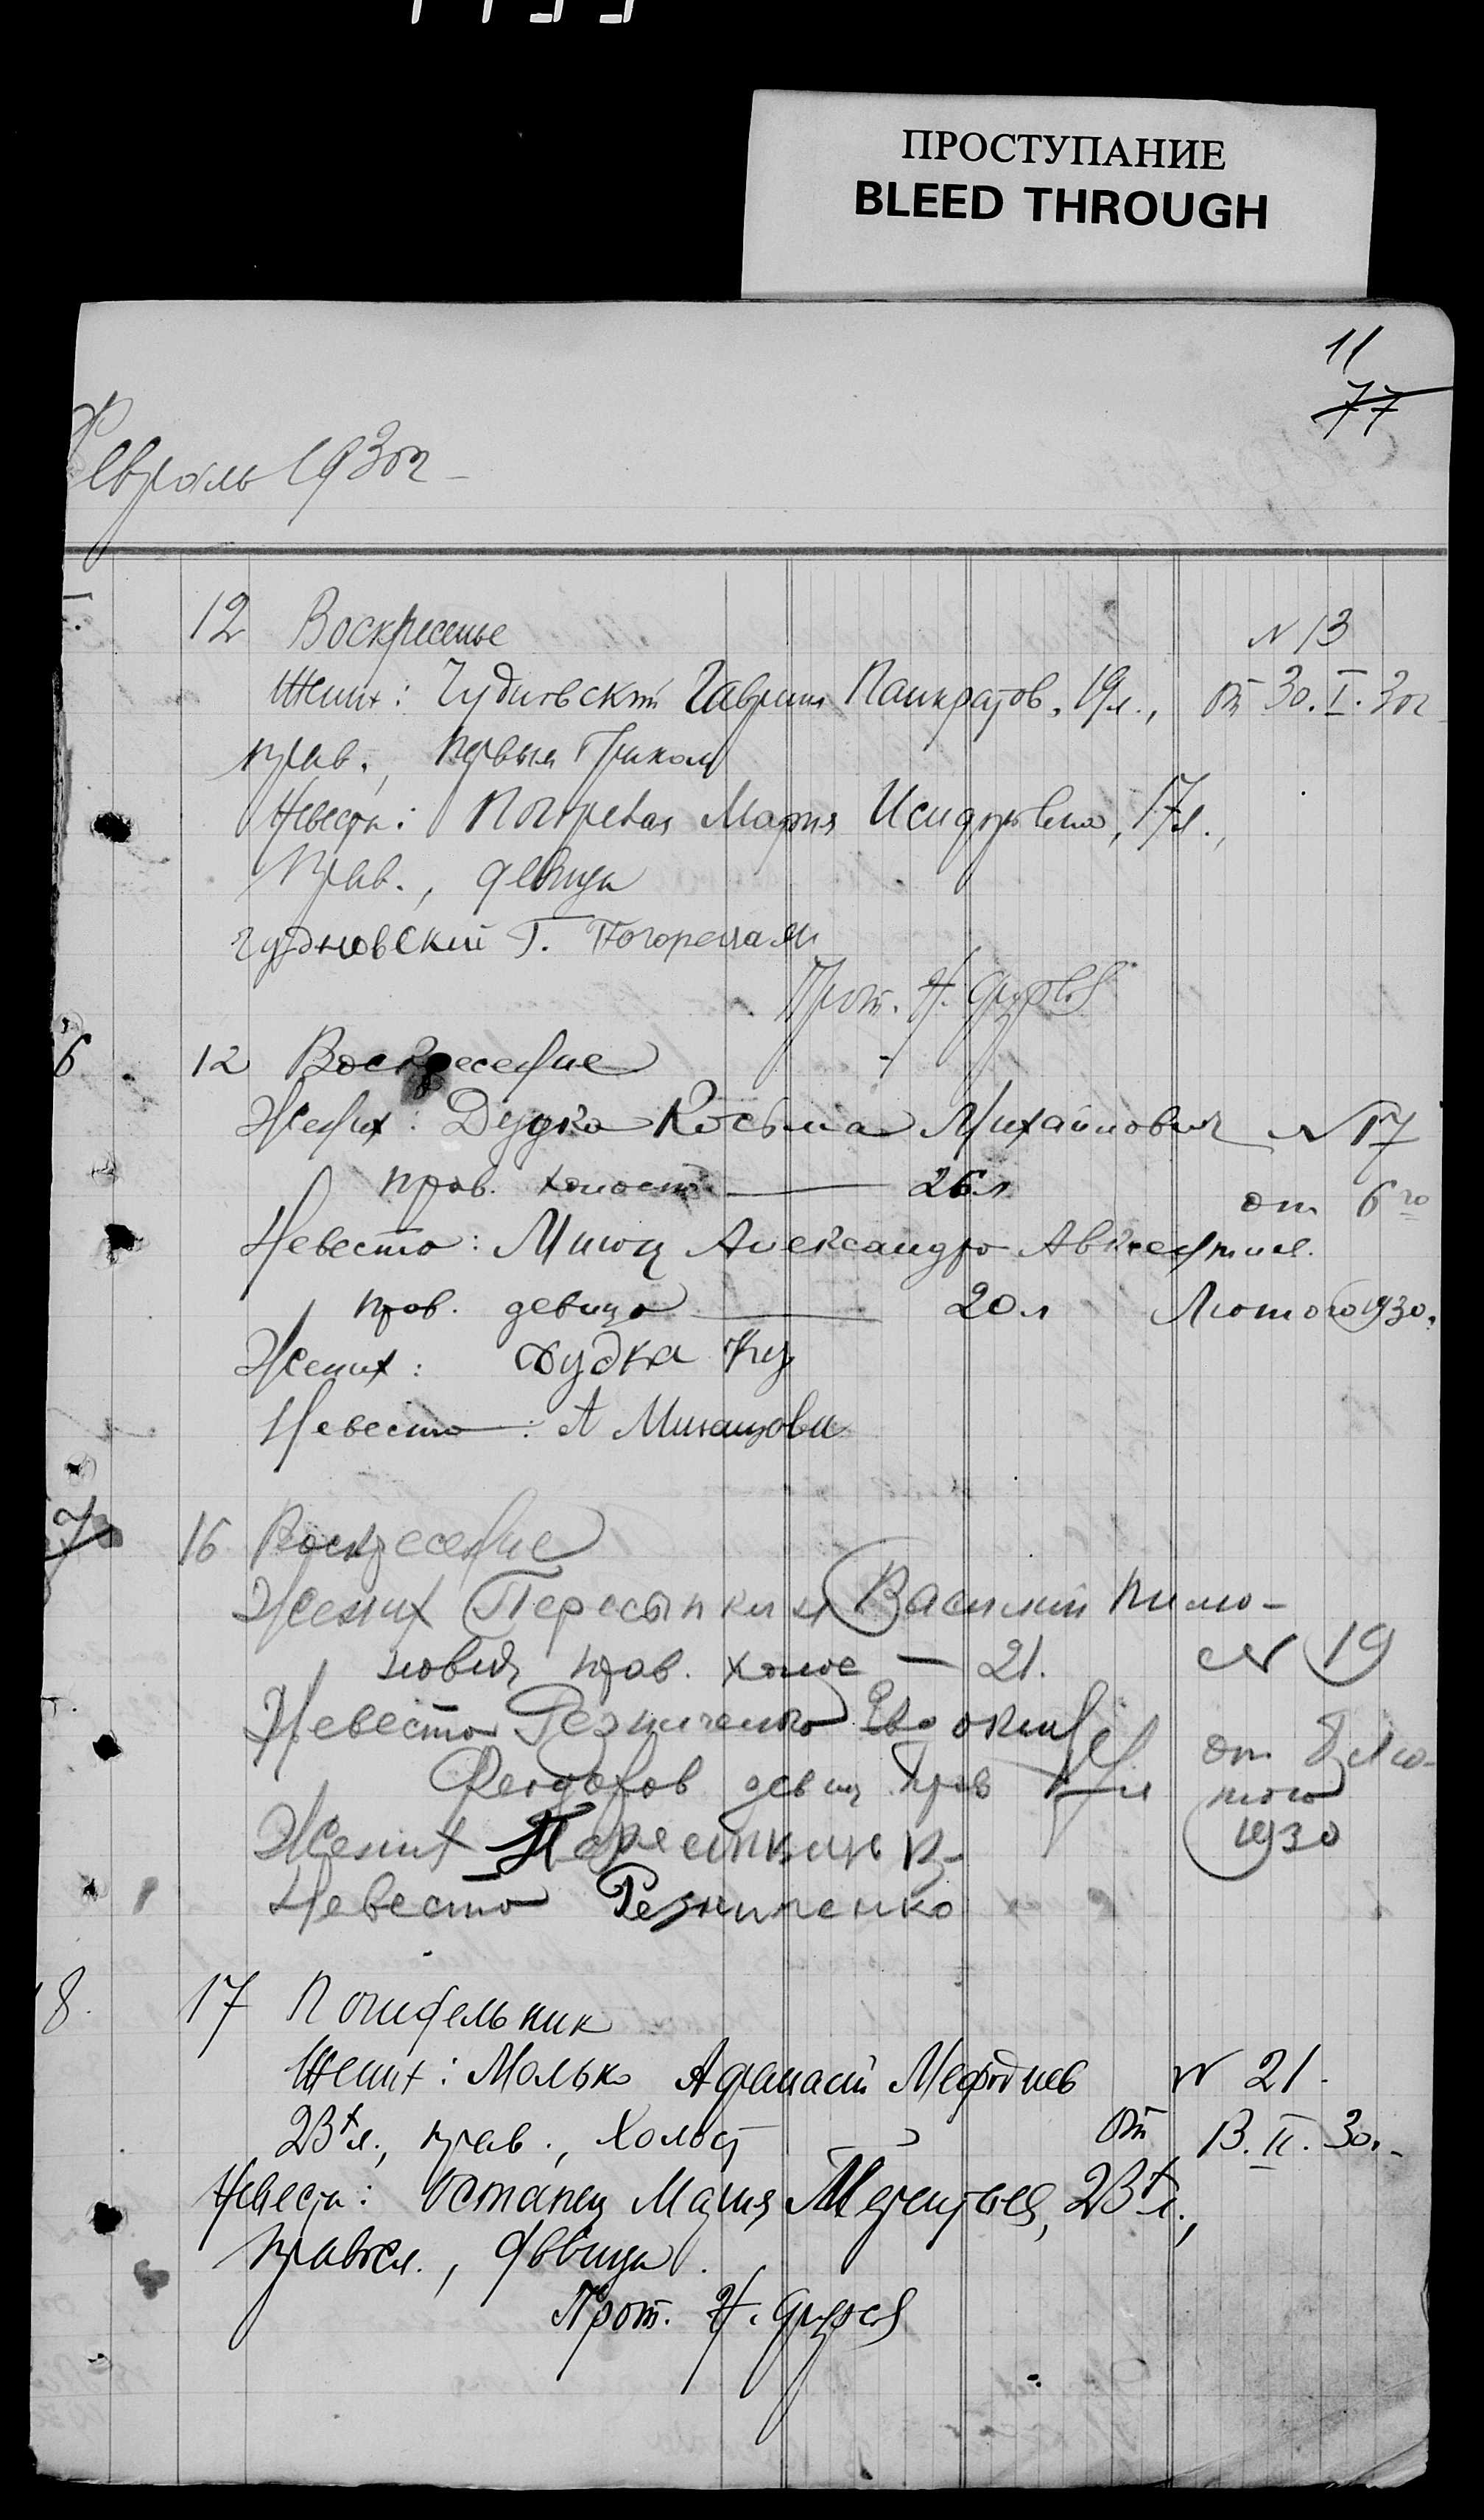 ПРОСТУПАНИЕ
BLEED THROUGH
11
77
Февраль 1930г
12 Воскресенье
N 13
Жених: Чудновский Гавриил Панкратов, 19л., от 30.I.30г
прав., первым браком
Невеста: Погорелая Мария Исидоровна, 17л.,
прав., девица
Чудновский Г. Погорелая М
Прот. Н.
6 12 Воскресение
Жених: Дудка Косьма Михайлович N 17
прав. холост — 26л
от 6го
Невеста: Александра Авксентиев.
прав. девица — 20л Лютого 1930.
Жених: Дудка Ку
Невеста: А
7 16 Воскресение
Жених Пересыпкин Василий Фили-
пович прав. холос — 21. N 19
Невеста Резниченко Евдокия
от 8 Лю-
Феодоров девиц прав
того
1930
Жених Пересипкин В
Невеста Резниченко
8. 17 Понидельник
Жених: Малько Афанасий Мефодиев N 21.
23х л., прав., холост от 13.II.30г.
Невеста: Остапец Мария Терентьев, 23х л.,
правосл., девица.
Прот. Н.